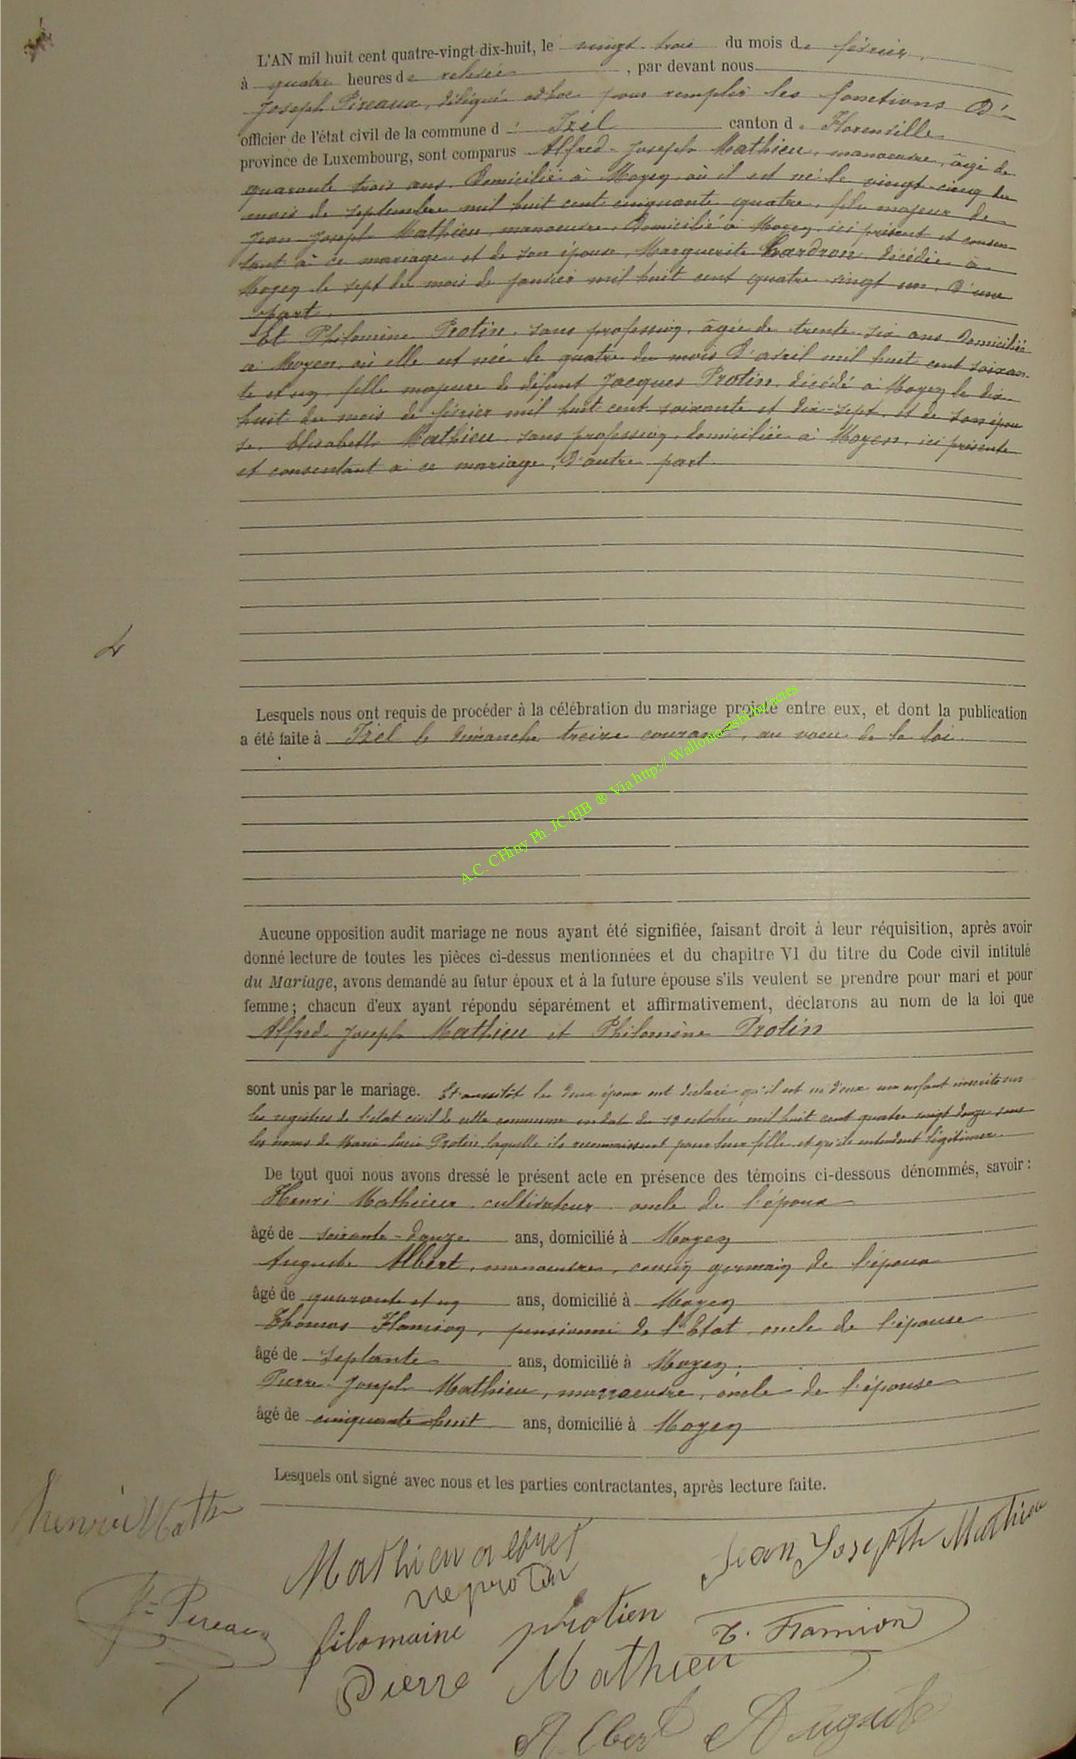 L'AN mil huit cent quatre-vingt-dix-huit, le vingt-trois du mois de février,
à quatre heures de relevée, par devant nous
Joseph Pireaux, délégué adhoc pour remplir les fonctions d'
officier de l'état civil de la commune d' Izel canton de Florenville
province de Luxembourg, sont comparus Alfred-Joseph Mathieu, manoeuvre, âgé de
quarante trois ans, domicilié à Moyen où il est né le vingt-cinq du
mois de septembre mil huit cent cinquante quatre, fils majeur de
Jean-Joseph Mathieu, manoeuvre, domicilié à Moyen, ici présent et consen-
tant à ce mariage et de son épouse, Marguerite Lardron, décédée à
Moyen le sept du mois de janvier mil huit cent quatre vingt un, d'une
part.
Et Philomène Protin, sans profession, âgée de trente six ans domiciliée
à Moyen, où elle est née le quatre du mois d'avril mil huit cent soixan-
te et un, fille majeure de défunt Jacques Protin, décédé à Moyen le dix
huit du mois de février mil huit cent soixante et dix-sept, et de son épou
se, Elisabeth Mathieu, sans profession, domiciliée à Moyen, ici présente
et consentant à ce mariage, d'autre part.
Lesquels nous ont requis de procéder à la célébration du mariage projeté entre eux, et dont la publication
a été faite à Izel le dimanche treize courant, au voeu de la loi.
A.C. CHiny Ph. JC/HB ® Via http://
Aucune opposition audit mariage ne nous ayant été signifiée, faisant droit à leur réquisition, après avoir
donné lecture de toutes les pièces ci-dessus mentionnées et du chapitre VI du titre du Code civil intitulé
du Mariage, avons demandé au futur époux et à la future épouse s'ils veulent se prendre pour mari et pour
femme ; chacun d'eux ayant répondu séparément et affirmativement, déclarons au nom de la loi que
Alfred-Joseph Mathieu et Philomène Protin
sont unis par le mariage. Et aussitôt les deux époux ont déclaré qu'il est né d'eux un enfant inscrite sur
les registres de l'état civil de cette commune en date du octobre mil huit cent quatre vingt douze sous
les noms de Marie Lucie Protin, laquelle ils reconnaissent pour leur fille et qu'ils entendent légitimer.
De tout quoi nous avons dressé le présent acte en présence des témoins ci-dessous dénommés, savoir :
Henri Mathieu cultivateur oncle de l'époux
âgé de soixante-douze ans, domicilié à Moyen
Auguste Albert, manoeuvre, cousin germain de l'époux
âgé de quarante et un ans, domicilié à Moyen
Thomas Flamion, pensionné de l'Etat, oncle de l'épouse
âgé de septante ans, domicilié à Moyen.
Pierre-Joseph Mathieu, manoeuvre, oncle de l'épouse
âgé de cinquante huit ans, domicilié à Moyen
Lesquels ont signé avec nous et les parties contractantes, après lecture faite.
henri Math
Mathieu
Jean Joseph Mathieu
J. Pireaux
filomaine protien
T. Flamion
Pierre Mathieu
Albert Auguste